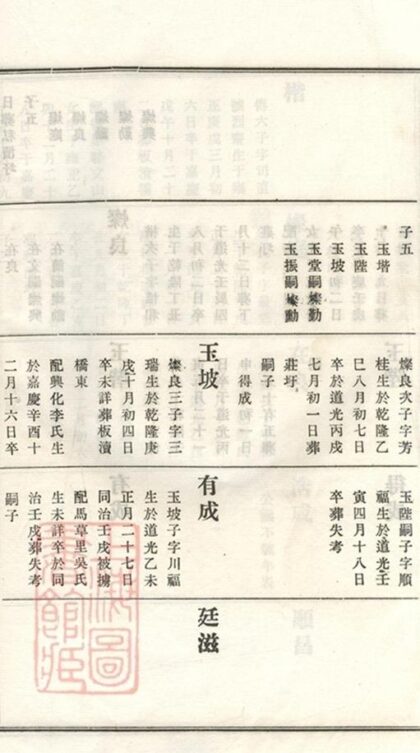 子五
玉堦
玉陞
玉坡
玉堂嗣燦勤
玉振嗣燦勳
燦良次子字芳
桂生於乾隆乙
巳八月初七日
卒於道光丙戌
七月初一日葬
莊圩
嗣子
得成
玉坡
燦良三子字三
瑞生於乾隆庚
戌十月初四日
卒未詳葬板瀆
橋東
配興化李氏生
於嘉慶辛酉十
二月十六日卒
玉陞嗣子字順
福生於道光壬
寅四月十八日
卒葬失考
有成
玉坡子字川福
生於道光乙未
正月二十七日
同治壬戌被擄
配馬草里吳氏
生未詳卒於同
治壬戌葬失考
嗣子
廷滋